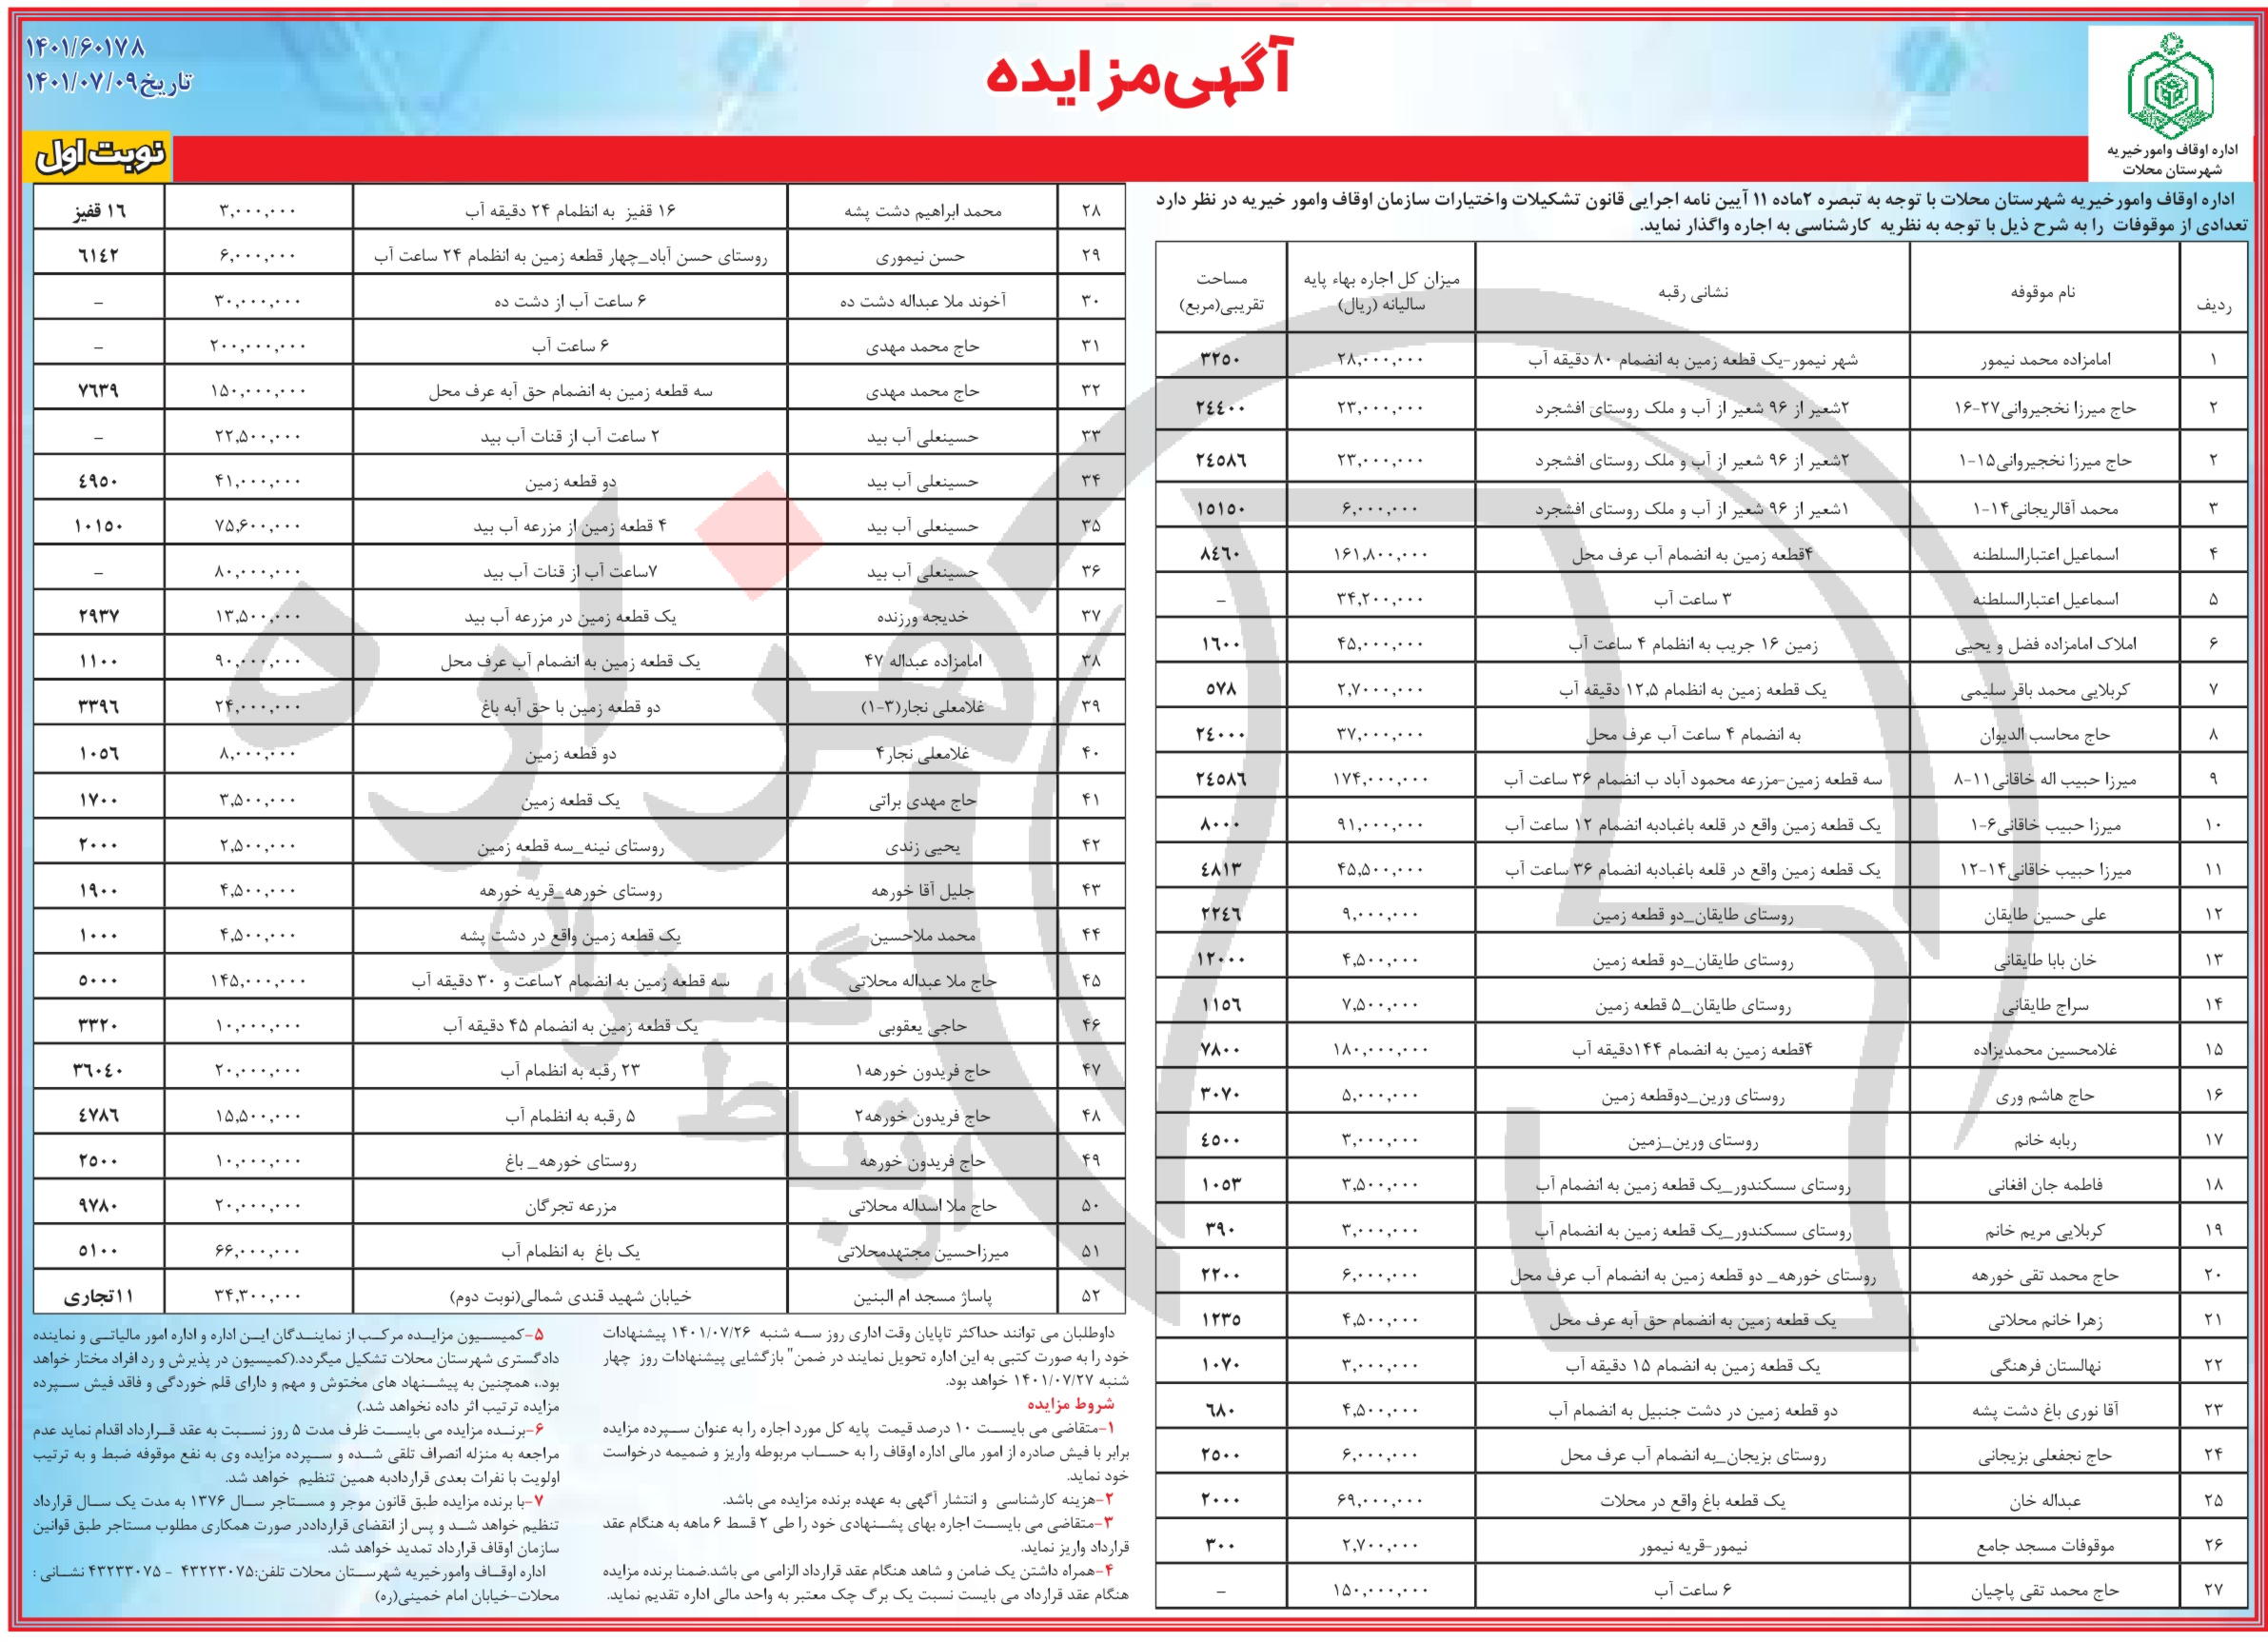 ۱۴۰۱/۶۰۱۷۸
تاریخ۱۴۰۱/۰۷/۰۹
آگهی مزایده
نوبت اول
اداره اوقاف وامورخیریه
شهرستان محلات
اداره اوقاف وامورخیریه شهرستان محلات با توجه به تبصره ۲ماده ۱۱ آیین نامه اجرایی قانون تشکیلات واختیارات سازمان اوقاف وامور خیریه در نظر دارد
تعدادی از موقوفات را به شرح ذیل با توجه به نظریه کارشناسی به اجاره واگذار نماید.
ردیف نام موقوفه نشانی رقبه میزان کل اجاره بهاء پایه سالیانه (ریال) مساحت تقریبی(مربع)
۱ امامزاده محمد نیمور شهر نیمور-یک قطعه زمین به انضمام ۸۰ دقیقه آب ۲۸,۰۰۰,۰۰۰ ۳۲۵۰
۲ حاج میرزا نخجیروانی۲۷-۱۶ ۲شعیر از ۹۶ شعیر از آب و ملک روستای افشجرد ۲۳,۰۰۰,۰۰۰ ۲٤٤۰۰
۲ حاج میرزا نخجیروانی۱۵-۱ ۲شعیر از ۹۶ شعیر از آب و ملک روستای افشجرد ۲۳,۰۰۰,۰۰۰ ۲٤۵۸٦
۳ محمد آقالریجانی۱۴-۱ ۱شعیر از ۹۶ شعیر از آب و ملک روستای افشجرد ۶,۰۰۰,۰۰۰ ۱۵۱۵۰
۴ اسماعیل اعتبارالسلطنه ۴قطعه زمین به انضمام آب عرف محل ۱۶۱,۸۰۰,۰۰۰ ۸٤٦۰
۵ اسماعیل اعتبارالسلطنه ۳ ساعت آب ۳۴,۲۰۰,۰۰۰ -
۶ املاک امامزاده فضل و یحیی زمین ۱۶ جریب به انظمام ۴ ساعت آب ۴۵,۰۰۰,۰۰۰ ۱٦۰۰
۷ کربلایی محمد باقر سلیمی یک قطعه زمین به انظمام ۱۲,۵ دقیقه آب ۲,۷۰۰۰,۰۰۰ ۵۷۸
۸ حاج محاسب الدیوان به انضمام ۴ ساعت آب عرف محل ۳۷,۰۰۰,۰۰۰ ۲٤۰۰۰
۹ میرزا حبیب اله خاقانی۱۱-۸ سه قطعه زمین-مزرعه محمود آباد ب انضمام ۳۶ ساعت آب ۱۷۴,۰۰۰,۰۰۰ ۲٤۵۸٦
۱۰ میرزا حبیب خاقانی۶-۱ یک قطعه زمین واقع در قلعه باغبادبه انضمام ۱۲ ساعت آب ۹۱,۰۰۰,۰۰۰ ۸۰۰۰
۱۱ میرزا حبیب خاقانی۱۴-۱۲ یک قطعه زمین واقع در قلعه باغبادبه انضمام ۳۶ ساعت آب ۴۵,۵۰۰,۰۰۰ ٤۸۱۳
۱۲ علی حسین طایقان روستای طایقان_دو قطعه زمین ۹,۰۰۰,۰۰۰ ۲۲٤٦
۱۳ خان بابا طایقانی روستای طایقان_دو قطعه زمین ۴,۵۰۰,۰۰۰ ۱۲۰۰۰
۱۴ سراج طایقانی روستای طایقان_۵ قطعه زمین ۷,۵۰۰,۰۰۰ ۱۱۵٦
۱۵ غلامحسین محمدیزاده ۴قطعه زمین به انضمام ۱۴۴دقیقه آب ۱۸۰,۰۰۰,۰۰۰ ۷۸۰۰
۱۶ حاج هاشم وری روستای ورین_دوقطعه زمین ۵,۰۰۰,۰۰۰ ۳۰۷۰
۱۷ ربابه خانم روستای ورین_زمین ۳,۰۰۰,۰۰۰ ٤۵۰۰
۱۸ فاطمه جان افغانی روستای سسکندور_یک قطعه زمین به انضمام آب ۳,۵۰۰,۰۰۰ ۱۰۵۳
۱۹ کربلایی مریم خانم روستای سسکندور_یک قطعه زمین به انضمام آب ۳,۰۰۰,۰۰۰ ۳۹۰
۲۰ حاج محمد تقی خورهه روستای خورهه_ دو قطعه زمین به انضمام آب عرف محل ۶,۰۰۰,۰۰۰ ۲۲۰۰
۲۱ زهرا خانم محلاتی یک قطعه زمین به انضمام حق آبه عرف محل ۴,۵۰۰,۰۰۰ ۱۲۳۵
۲۲ نهالستان فرهنگی یک قطعه زمین به انضمام ۱۵ دقیقه آب ۳,۰۰۰,۰۰۰ ۱۰۷۰
۲۳ آقا نوری باغ دشت پشه دو قطعه زمین در دشت جنبیل به انضمام آب ۴,۵۰۰,۰۰۰ ٦۸۰
۲۴ حاج نجفعلی بزیجانی روستای بزیجان_به انضمام آب عرف محل ۶,۰۰۰,۰۰۰ ۲۵۰۰
۲۵ عبداله خان یک قطعه باغ واقع در محلات ۶۹,۰۰۰,۰۰۰ ۲۰۰۰
۲۶ موقوفات مسجد جامع نیمور-قریه نیمور ۲,۷۰۰,۰۰۰ ۳۰۰
۲۷ حاج محمد تقی پاچیان ۶ ساعت آب ۱۵۰,۰۰۰,۰۰۰ -
۲۸ محمد ابراهیم دشت پشه ۱۶ قفیز به انظمام ۲۴ دقیقه آب ۳,۰۰۰,۰۰۰ ۱٦ قفیز
۲۹ حسن نیموری روستای حسن آباد_چهار قطعه زمین به انظمام ۲۴ ساعت آب ۶,۰۰۰,۰۰۰ ٦۱٤۲
۳۰ آخوند ملا عبداله دشت ده ۶ ساعت آب از دشت ده ۳۰,۰۰۰,۰۰۰ -
۳۱ حاج محمد مهدی ۶ ساعت آب ۲۰۰,۰۰۰,۰۰۰ -
۳۲ حاج محمد مهدی سه قطعه زمین به انضمام حق آبه عرف محل ۱۵۰,۰۰۰,۰۰۰ ۷٦۳۹
۳۳ حسینعلی آب بید ۲ ساعت آب از قنات آب بید ۲۲,۵۰۰,۰۰۰ -
۳۴ حسینعلی آب بید دو قطعه زمین ۴۱,۰۰۰,۰۰۰ ٤۹۵۰
۳۵ حسینعلی آب بید ۴ قطعه زمین از مزرعه آب بید ۷۵,۶۰۰,۰۰۰ ۱۰۱۵۰
۳۶ حسینعلی آب بید ۷ساعت آب از قنات آب بید ۸۰,۰۰۰,۰۰۰ -
۳۷ خدیجه ورزنده یک قطعه زمین در مزرعه آب بید ۱۳,۵۰۰,۰۰۰ ۲۹۳۷
۳۸ امامزاده عبداله ۴۷ یک قطعه زمین به انضمام آب عرف محل ۹۰,۰۰۰,۰۰۰ ۱۱۰۰
۳۹ غلامعلی نجار(۳-۱) دو قطعه زمین با حق آبه باغ ۲۴,۰۰۰,۰۰۰ ۳۳۹٦
۴۰ غلامعلی نجار۴ دو قطعه زمین ۸,۰۰۰,۰۰۰ ۱۰۵٦
۴۱ حاج مهدی براتی یک قطعه زمین ۳,۵۰۰,۰۰۰ ۱۷۰۰
۴۲ یحیی زندی روستای نینه_سه قطعه زمین ۲,۵۰۰,۰۰۰ ۲۰۰۰
۴۳ جلیل آقا خورهه روستای خورهه_قریه خورهه ۴,۵۰۰,۰۰۰ ۱۹۰۰
۴۴ محمد ملاحسین یک قطعه زمین واقع در دشت پشه ۴,۵۰۰,۰۰۰ ۱۰۰۰
۴۵ حاج ملا عبداله محلاتی سه قطعه زمین به انضمام ۲ساعت و ۳۰ دقیقه آب ۱۴۵,۰۰۰,۰۰۰ ۵۰۰۰
۴۶ حاجی یعقوبی یک قطعه زمین به انضمام ۴۵ دقیقه آب ۱۰,۰۰۰,۰۰۰ ۳۳۲۰
۴۷ حاج فریدون خورهه۱ ۲۳ رقبه به انظمام آب ۲۰,۰۰۰,۰۰۰ ۳٦۰٤۰
۴۸ حاج فریدون خورهه۲ ۵ رقبه به انظمام آب ۱۵,۵۰۰,۰۰۰ ٤۷۸٦
۴۹ حاج فریدون خورهه روستای خورهه_ باغ ۱۰,۰۰۰,۰۰۰ ۲۵۰۰
۵۰ حاج ملا اسداله محلاتی مزرعه تجرگان ۲۰,۰۰۰,۰۰۰ ۹۷۸۰
۵۱ میرزاحسین مجتهدمحلاتی یک باغ به انظمام آب ۶۶,۰۰۰,۰۰۰ ۵۱۰۰
۵۲ پاساژ مسجد ام البنین خیابان شهید قندی شمالی(نوبت دوم) ۳۴,۳۰۰,۰۰۰ ۱۱تجاری
داوطلبان می توانند حداکثر تاپایان وقت اداری روز سه شنبه ۱۴۰۱/۰۷/۲۶ پیشنهادات
خود را به صورت کتبی به این اداره تحویل نمایند در ضمن" بازگشایی پیشنهادات روز چهار
شنبه ۱۴۰۱/۰۷/۲۷ خواهد بود.
شروط مزایده
۱-متقاضی می بایست ۱۰ درصد قیمت پایه کل مورد اجاره را به عنوان سپرده مزایده
برابر با فیش صادره از امور مالی اداره اوقاف را به حساب مربوطه واریز و ضمیمه درخواست
خود نماید.
۲-هزینه کارشناسی و انتشار آگهی به عهده برنده مزایده می باشد.
۳-متقاضی می بایست اجاره بهای پشنهادی خود را طی ۲ قسط ۶ ماهه به هنگام عقد
قرارداد واریز نماید.
۴-همراه داشتن یک ضامن و شاهد هنگام عقد قرارداد الزامی می باشد.ضمنا برنده مزایده
هنگام عقد قرارداد می بایست نسبت یک برگ چک معتبر به واحد مالی اداره تقدیم نماید.
۵-کمیسیون مزایده مرکب از نمایندگان این اداره و اداره امور مالیاتی و نماینده
دادگستری شهرستان محلات تشکیل میگردد.(کمیسیون در پذیرش و رد افراد مختار خواهد
بود.، همچنین به پیشنهاد های مختوش و مهم و دارای قلم خوردگی و فاقد فیش سپرده
مزایده ترتیب اثر داده نخواهد شد.)
۶-برنده مزایده می بایست ظرف مدت ۵ روز نسبت به عقد قرارداد اقدام نماید عدم
مراجعه به منزله انصراف تلقی شده و سپرده مزایده وی به نفع موقوفه ضبط و به ترتیب
اولویت با نفرات بعدی قراردادبه همین تنظیم خواهد شد.
۷-با برنده مزایده طبق قانون موجر و مستاجر سال ۱۳۷۶ به مدت یک سال قرارداد
تنظیم خواهد شد و پس از انقضای قرارداددر صورت همکاری مطلوب مستاجر طبق قوانین
سازمان اوقاف قرارداد تمدید خواهد شد.
اداره اوقاف وامورخیریه شهرستان محلات تلفن:۴۳۲۲۳۰۷۵ - ۴۳۲۳۳۰۷۵ نشانی :
محلات-خیابان امام خمینی(ره)
هزاره
گستران
ارتباط